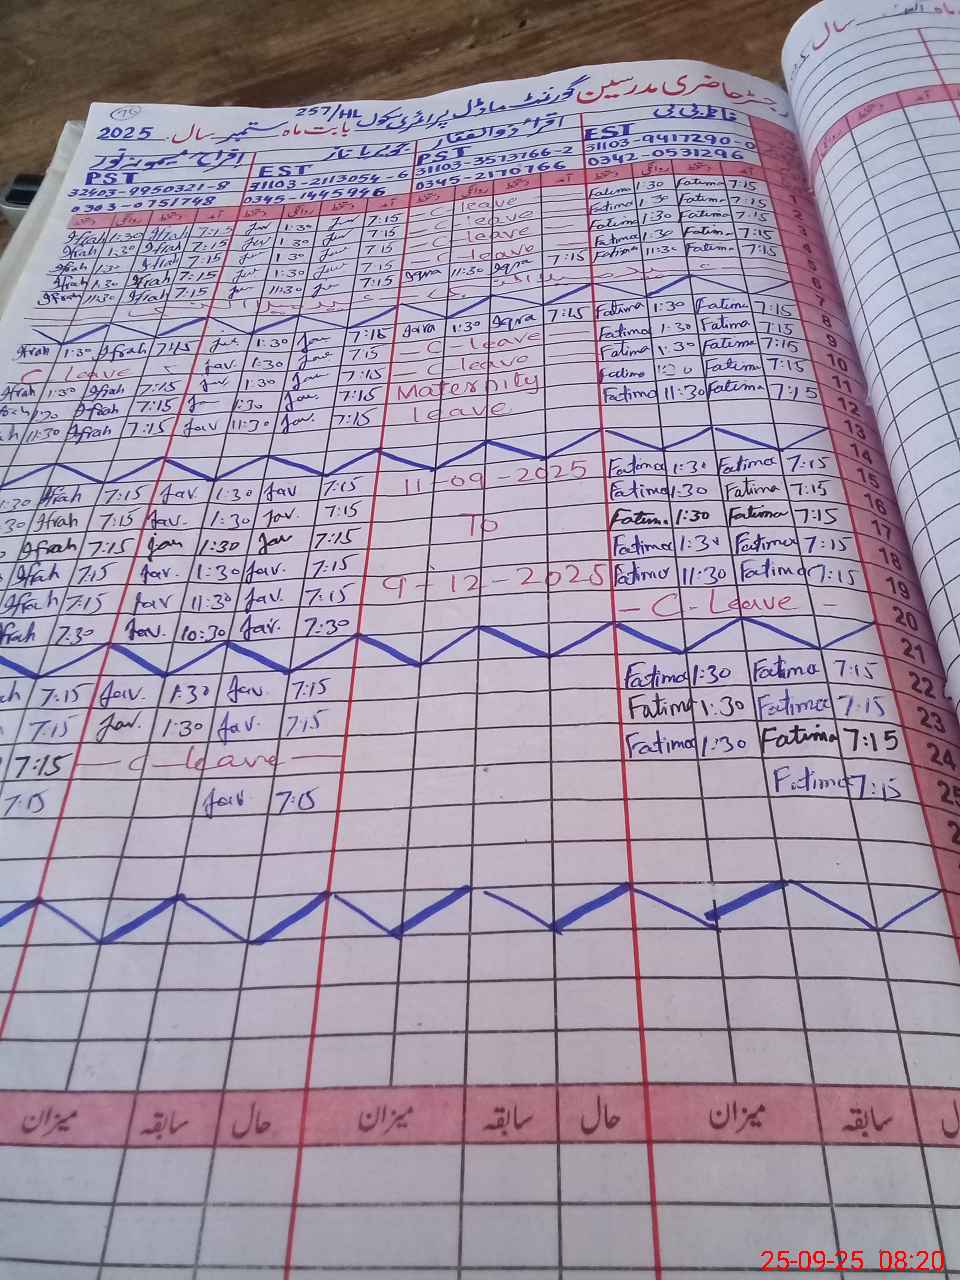 رجسٹر حاضری مدرسین گورنمنٹ ماڈل پرائمری سکول 257/HL بابت ماہ ستمبر سال 2025
فاطمہ بی بی
اقراء ذوالفقار
EST
PST
EST
PST
31103-9417290-0
31103-3573766-2
31103-2113054-6
32403-9950321-8
0342-0531296
0345-2170766
0345-1445946
0303-0751748
Ifrah 1:30 Ifrah 7:15 Jav 1:30 Jav 7:15 - C-leave - Fatima 1:30 Fatima 7:15 1
Ifrah 1:30 Ifrah 7:15 Jav 1:30 Jav 7:15 - C-leave - Fatima 1:30 Fatima 7:15 2
Ifrah 1:30 Ifrah 7:15 Jav 1:30 Jav 7:15 - C-leave - Fatima 1:30 Fatima 7:15 3
Ifrah 1:30 Ifrah 7:15 Jav 1:30 Jav 7:15 - C-leave - Fatima 1:30 Fatima 7:15 4
Ifrah 11:30 Ifrah 7:15 Jav 11:30 Jav 7:15 Iqra 11:30 Iqra 7:15 Fatima 11:30 Fatima 7:15 5
6
7
Ifrah 1:30 Ifrah 7:15 Jav 1:30 Jav 7:15 Iqra 1:30 Iqra 7:15 Fatima 1:30 Fatima 7:15 8
C leave Jav 1:30 Jav 7:15 - C-leave - Fatima 1:30 Fatima 7:15 9
Ifrah 1:30 Ifrah 7:15 Jav 1:30 Jav 7:15 - C-leave - Fatima 1:30 Fatima 7:15 10
1:30 Ifrah 7:15 Jav 1:30 Jav 7:15 Maternity Fatima 1:30 Fatima 7:15 11
11:30 Ifrah 7:15 Jav 11:30 Jav 7:15 Leave Fatima 11:30 Fatima 7:15 12
13
14
1:30 Ifrah 7:15 Jav. 1:30 Jav 7:15 11-09-2025 Fatima 1:30 Fatima 7:15 15
30 Ifrah 7:15 Jav. 1:30 Jav. 7:15 Fatima 1:30 Fatima 7:15 16
Ifrah 7:15 Jav 1:30 Jav 7:15 To Fatima 1:30 Fatima 7:15 17
Ifrah 7:15 Jav. 1:30 Jav. 7:15 Fatima 1:30 Fatima 7:15 18
Ifrah 7:15 Jav 11:30 Jav. 7:15 9-12-2025 Fatima 11:30 Fatima 7:15 19
Ifrah 7:30 Jav. 10:30 Jav. 7:30 - C-Leave - 20
21
7:15 Jav. 1:30 Jav. 7:15 Fatima 1:30 Fatima 7:15 22
7:15 Jav. 1:30 Jav. 7:15 Fatima 1:30 Fatima 7:15 23
7:15 - C-leave - Fatima 1:30 Fatima 7:15 24
7:15 Jav. 7:15 Fatima 7:15 25
سابقہ میزان حال سابقہ میزان حال سابقہ میزان
25-09-25 08:20